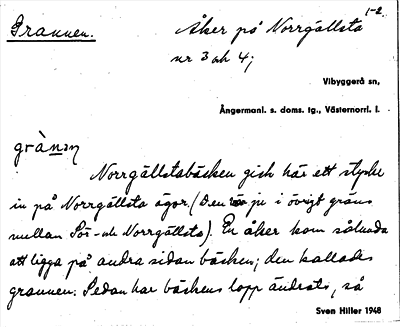 Grannen. Åker på Norrgällsta 1-2
nr 3 och 4;
Vibyggerå sn,
Ångermanl. s. doms. tg., Västernorrl. l.
grànǝn
Norrgällstabäcken gick här ett stycke
in på Norrgällsta ägor. (Den är ju i övrigt gräns
mellan Sör- och Norrgällsta). En åker kom således
att ligga på andra sidan bäcken; den kallades
grannen. Sedan har bäckens lopp ändrats, så
Sven Hiller 1948